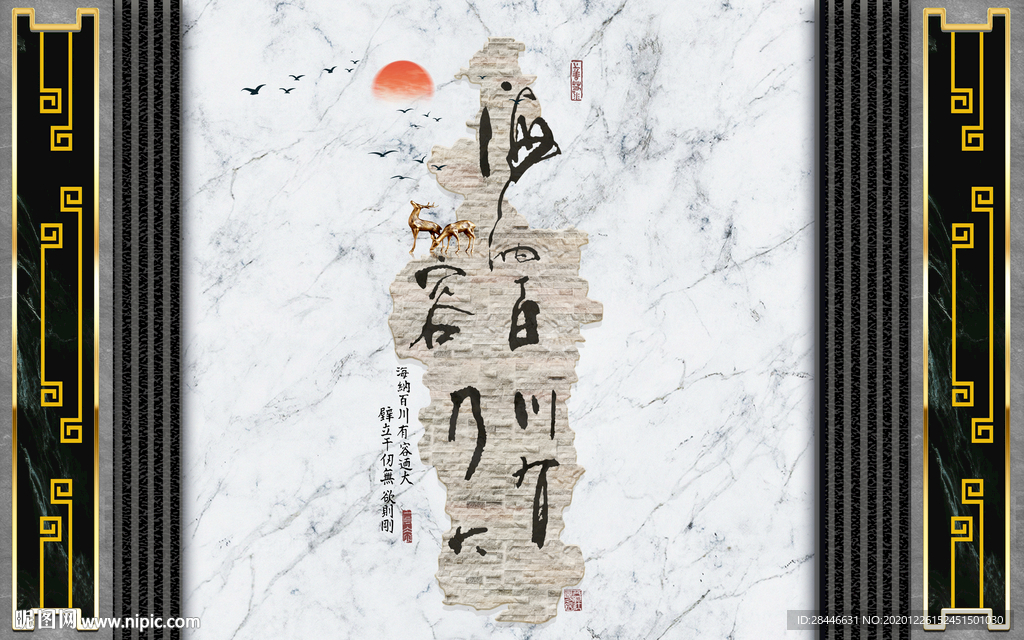 海納百川有
容乃大
海納百川有容迺大
壁立千仞無欲則剛
昵图网 www.nipic.com
ID:28446631 NO:20201226152451501030